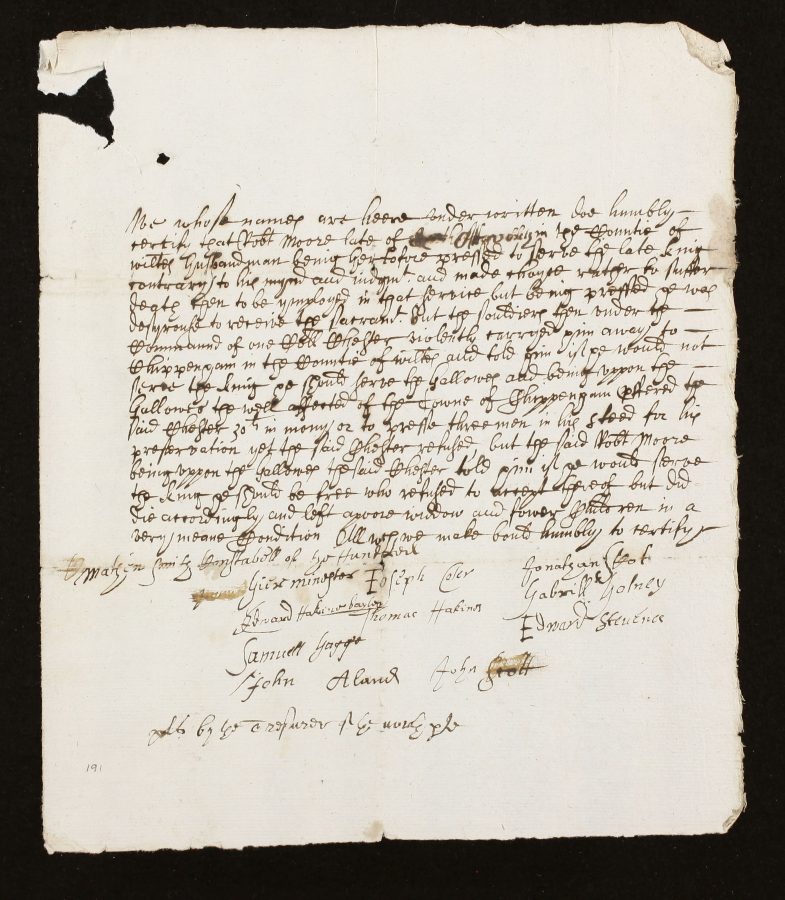 We whose names are heere under written doe humbly
certify that Robt Moore late of in the Countie of
wiltes husbandman being hertofore pressed to serve the late King
contrary to his mynd and judgmt. and made choyce rather to suffer
death then to be ymployed in that service but being pressed he was
desyrouse to receive the sacramt. But the souldiers then under the
Command of one Will Chester violently carryed him away to
Chippenham in the Countie of wiltes and told him if he would not
serve the King he should serve the Gallowes and being uppon the
Gallowes the well affected of the Towne of Chippenham offered the
said Chester 30li in mony or to presse three men in his steed for his
preservation yet the said Chester refused but the said Robt Moore
being uppon the Gallowes the said Chester told him if he would serve
the King he should be free who refused to accept thereof but did
die accordingly and left a poore widdow and fower Children in a
very meane Condition All wch we make bould humbly to certify
smith Constabell of the Hundred
minester Joseph Jonathan Scot
Edward Hakins Thomas Hakines Gabriell Golney
Samuell Edward Stevence
John Aland John Scott
by the Tresurer of the north pte
191